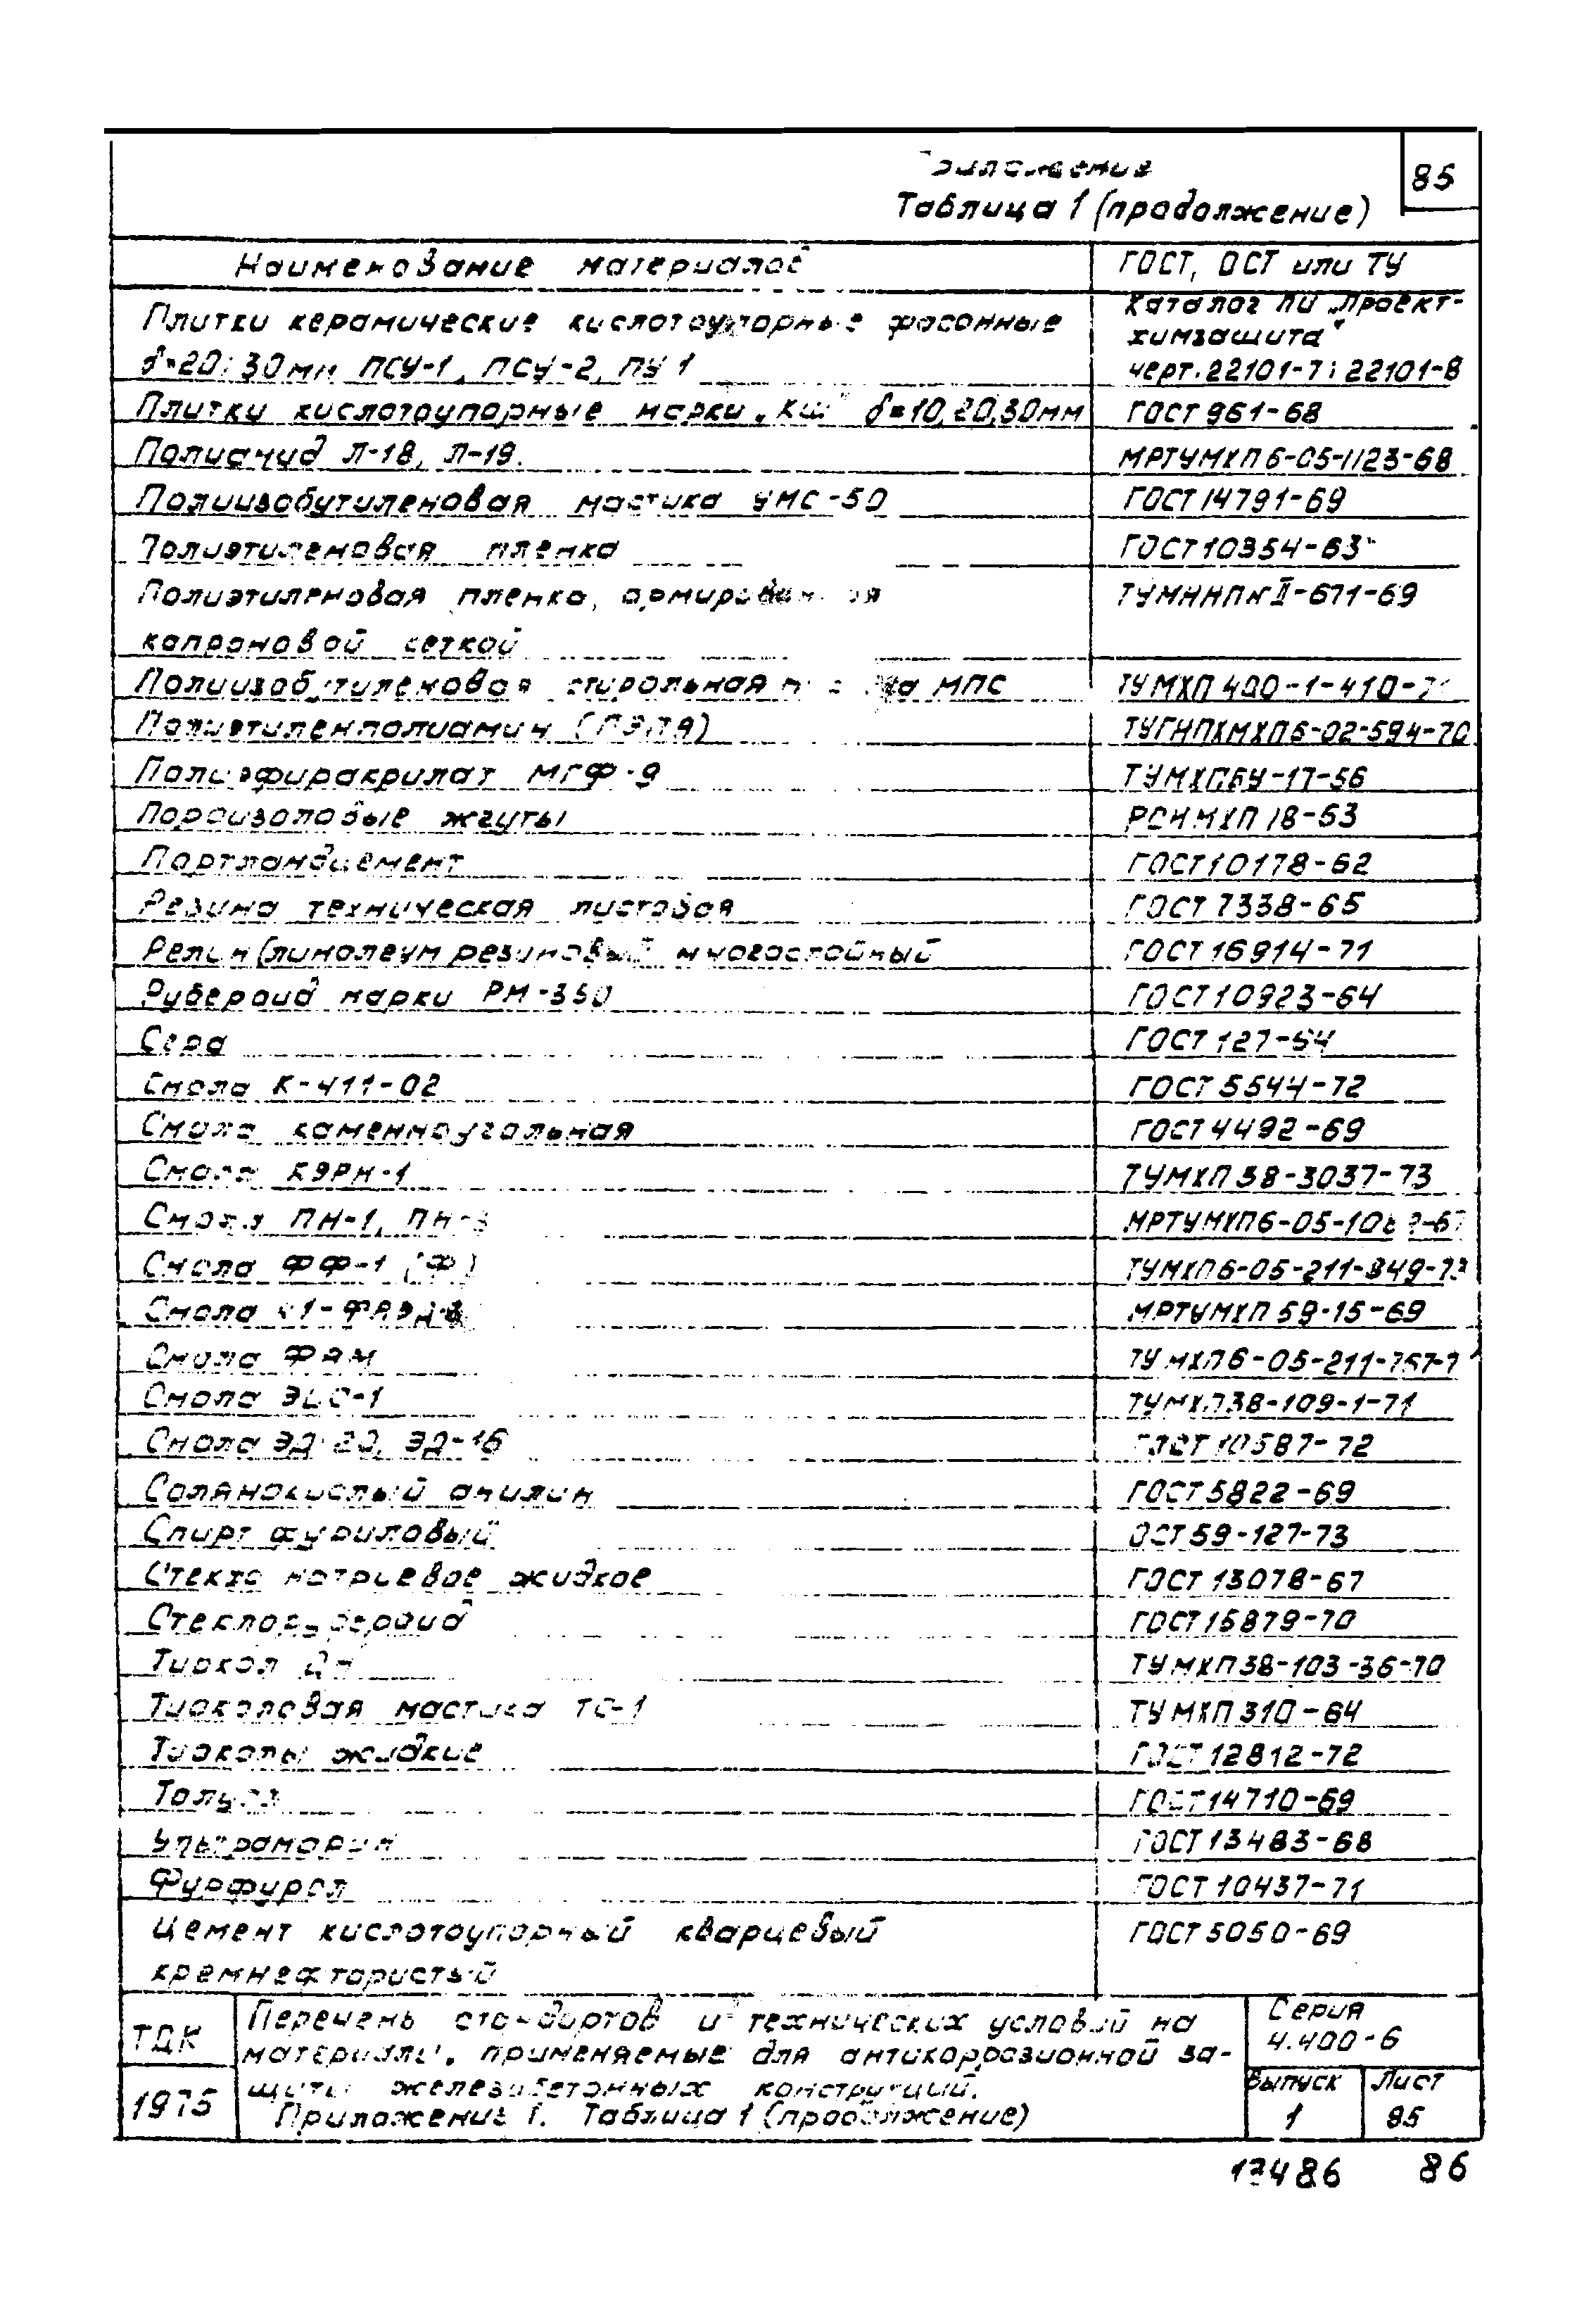 85
Таблица 1 (продолжение)
Наименование материалов ГОСТ, ОСТ или ТУ
Плитки керамические кислотоупорные фасонные Каталог ПИ „Проект-
химзащита"
δ=20; 30мм ПСУ-1, ПСУ-2, ПУ 1 черт. 22101-7; 22101-8
Плитки кислотоупорные марки „КШ" δ=10, 20, 30мм ГОСТ 961-68
Полиамид Л-18, Л-19. МРТУМХП 6-05-1123-68
Полиизобутиленовая мастика УМС-50 ГОСТ 14791-69
Полиэтиленовая пленка ГОСТ 10354-63
Полиэтиленовая пленка, армированная
капроновой сеткой
Полиизобутиленовая стирольная МПС ТУМХП 400-1-410-
Полиэтиленполиамин (ПЭПА) ТУГНПХМХП6-02-594-70
Полиэфиракрилат МГФ-9 ТУМХПБУ-17-56
Пороизоловые жгуты РСН МХП 18-63
Портландцемент ГОСТ 10178-62
Резина техническая листовая ГОСТ 7338-65
Релин (линолеум резиновый многослойный ГОСТ 16914-71
Рубероид марки РМ-350 ГОСТ 10923-64
Сера ГОСТ 127-64
Смола К-411-02 ГОСТ 5544-72
Смола каменноугольная ГОСТ 4492-69
Смола КЭРН-1 ТУМХП 38-3037-73
Смола ПН-1, ПН-3
Смола ФФ-1 (Ф) ТУМХП6-05-211-849-73
Смола МРТУМХП 59-15-69
Смола ФАМ
Смола ЭИС-1 ТУМХП38-109-1-71
Смола ЭД-20, ЭД-16 ГОСТ 10587-72
Солянокислый анилин ГОСТ 5822-69
Спирт фуриловый ОСТ 59-127-73
Стекло натриевое жидкое ГОСТ 13078-67
Стеклорубероид ГОСТ 15879-70
Тиокол ТУМХП38-103-36-70
Тиоколовая мастика ТС-1 ТУ МХП 310-64
Тиоколы жидкие ГОСТ 12812-72
Толуол ГОСТ 14710-69
Ультрамарин ГОСТ 13483-68
Фурфурол ГОСТ 10437-71
Цемент кислотоупорный кварцевый ГОСТ 5050-69
кремнефтористый
ТДК Перечень стандартов и технических условий на Серия
материалы, применяемые для антикоррозионной за- 4.400-6
1975 щиты железобетонных конструкций. Выпуск Лист
Приложение 1. Таблица 1 (продолжение) 1 85
13486 86